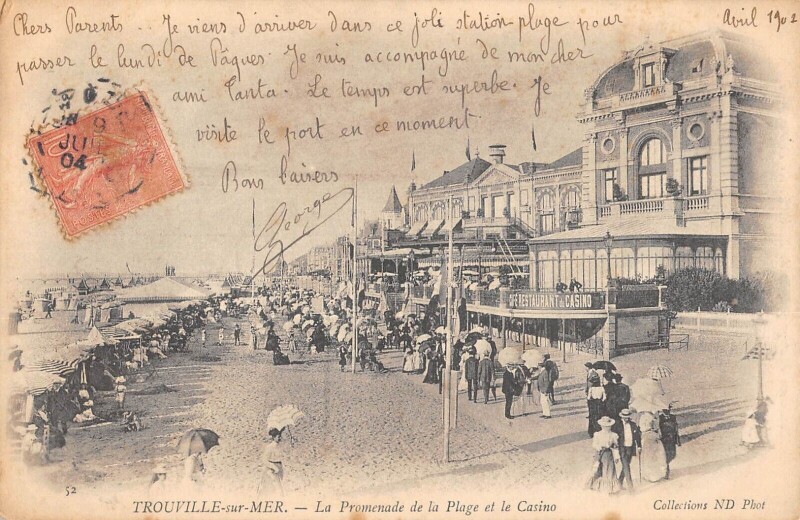 Avril 1902
Chers Parents.. Je viens d'arriver dans ce joli station-plage pour
passer le lundi de Pâques. Je suis accompagné de mon cher
ami Tanta. Le temps est superbe. Je
visite le port en ce moment.
Bons baisers
George
04
RESTAURANT DU CASINO
52
TROUVILLE-sur-MER. — La Promenade de la Plage et le Casino
Collections ND Phot